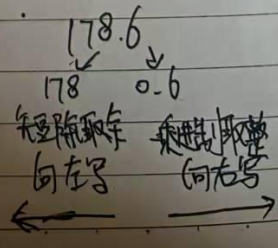 178.6
178 0.6
短除取余 乘进制取整
向左写 向右写